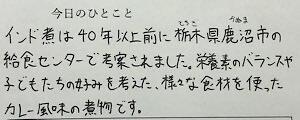 今日のひとこと
インド煮は40年以上前に栃木県鹿沼市の
とちぎ かぬま
給食センターで考案されました。栄養素のバランスや
子どもたちの好みを考えた、様々な食材を使った
カレー風味の煮物です。